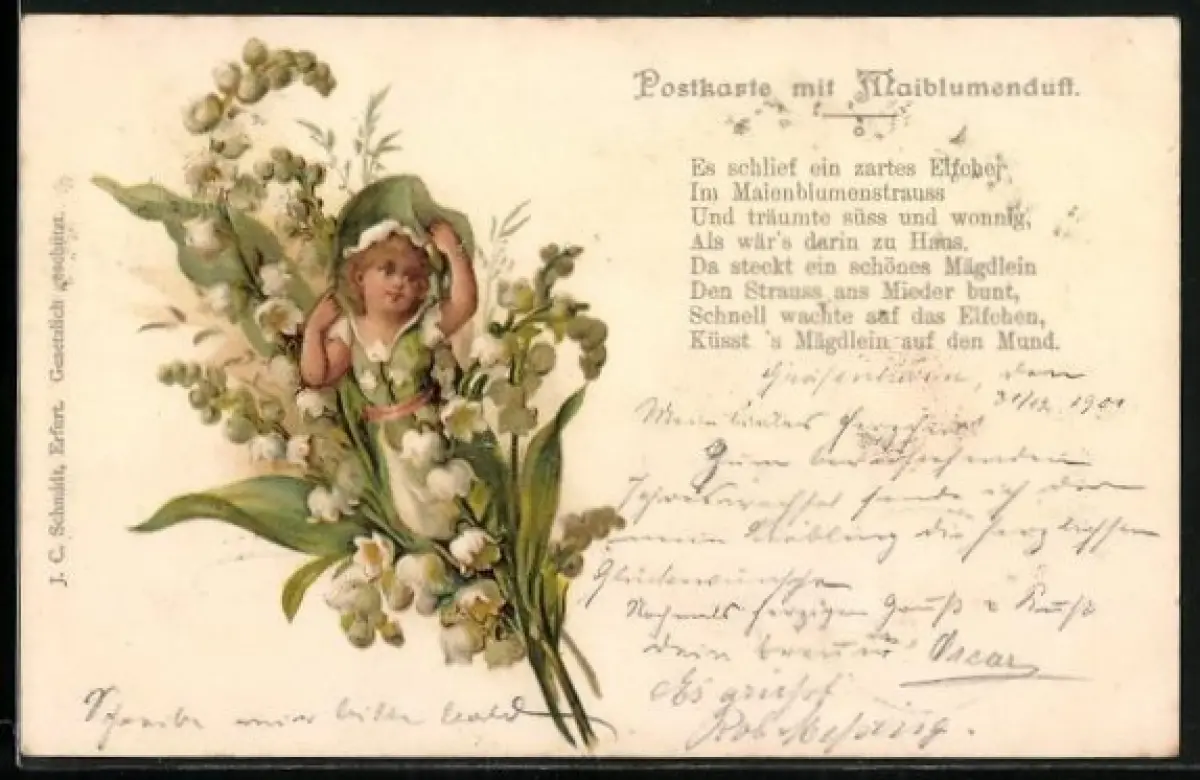 Postkarte mit Maiblumenduft.
Es schlief ein zartes Elfchen,
Im Maienblumenstrauss
Und träumte süss und wonnig,
Als wär's darin zu Haus.
Da steckt ein schönes Mägdlein
Den Strauss ans Mieder bunt,
Schnell wachte auf das Elfchen,
Küsst 's Mägdlein auf den Mund.
den
31/12. 1901
Mein liebes
Zum bevorstehenden
Jahreswechsel sende ich dir
mein Liebling die herzlichsten
Glückwünsche
Nochmals herzigen Gruß u Kuß
dein treuer Oscar
Es grüßt
Rob.
Schreibe mir bitte bald
J. C. Schmidt, Erfurt. Gesetzlich geschützt.